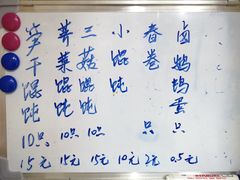 笋干馄饨 10只 15元
荠菜馄饨 10只 15元
三菇馄饨 10只 15元
小馄饨 10元
春卷 只 2元
卤鹌鹑蛋 只 0.5元